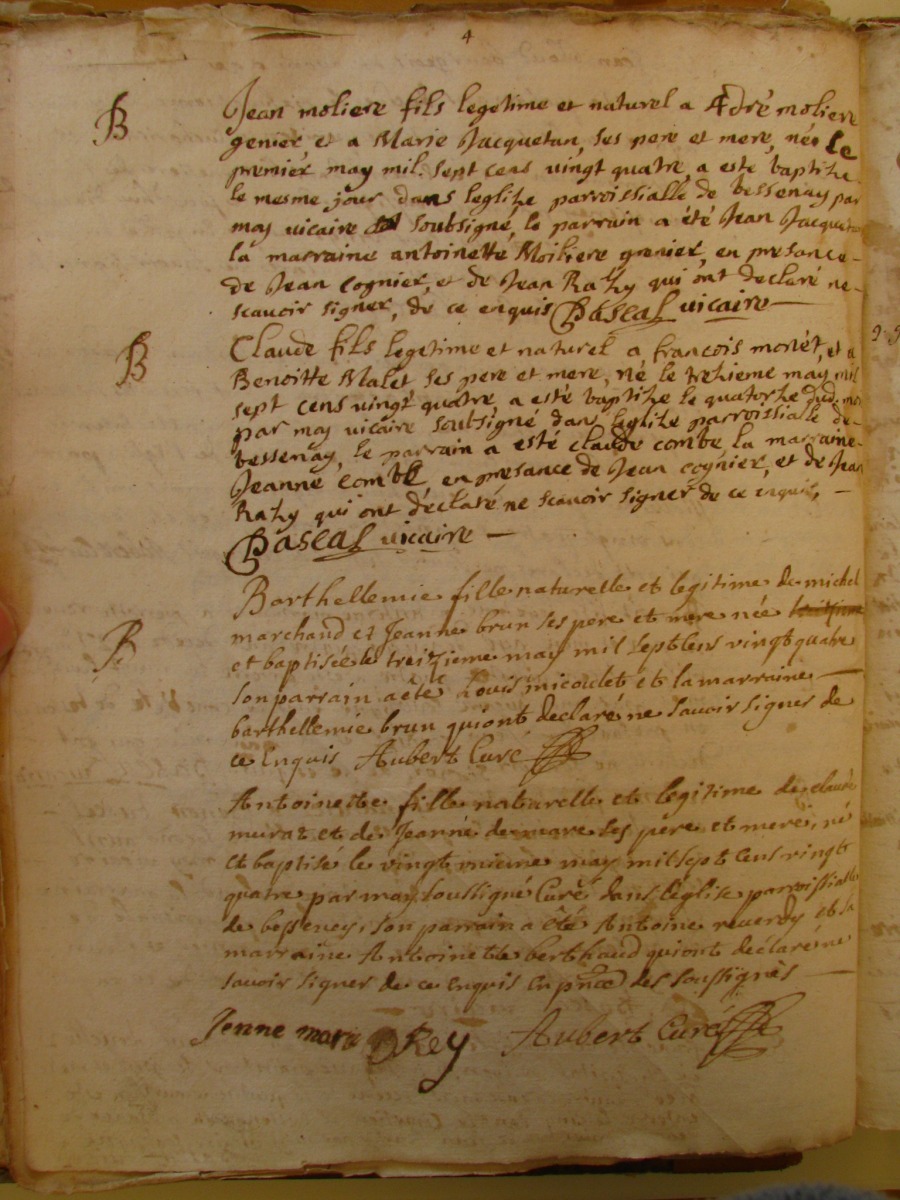 4
B
Jean moliere fils legetime et naturel a Adré moliere
genier, et a Marie Jacquetan, ses pere et mere, né le
premier may mil. sept cens vingt quatre, a este baptize
le mesme jour dans leglize parroissialle de bessenay par
moy vicaire soubsigné, le parrain a été Jean Jacquetan
la marraine antoinette Moiliere grenier, en presance
de Jean cognier, et de Jean Razy qui ont declaré ne
scavoir signer, de ce enquis Pascal vicaire
B
Claude fils legetime et naturel a francois monet, et a
Benoitte Malet, ses pere et mere, né le trezieme may mil
sept cens vingt quatre a esté baptize le quatorze dud. mois
par moy vicaire soubsigné dans leglize parroissialle de
bessenay, le parrain a esté claude combe la marraine
Jeanne combe en presance de Jean cognier, et de Jean
Razy qui ont déclaré ne scavoir signer de ce enquis,
Pascal vicaire
B
Barthellemie fille naturelle et legitime de michel
marchand et Jeanne brun ses pere et mere née
et baptisée le treizieme may mil sept cens vingt quatre
son parrain a été Louis micoulet et la marraine
barthellemie brun qui ont declaré ne savoir signer de
ce Enquis Aubert Curé
Antoinette fille naturelle et legitime de claude
murat et de Jeanne demare ses pere et mere, né
et baptisé le vingt unieme may mil sept cens vingt
quatre par moy soussigné Curé dans l'eglise parroissialle
de bessenay, son parrain a été Antoine reverdy et sa
marraine Antoinette berthaud qui ont déclaré ne
savoir signer de ce enquis en pnce des soussignés
Jenne mari Rey Aubert Curé